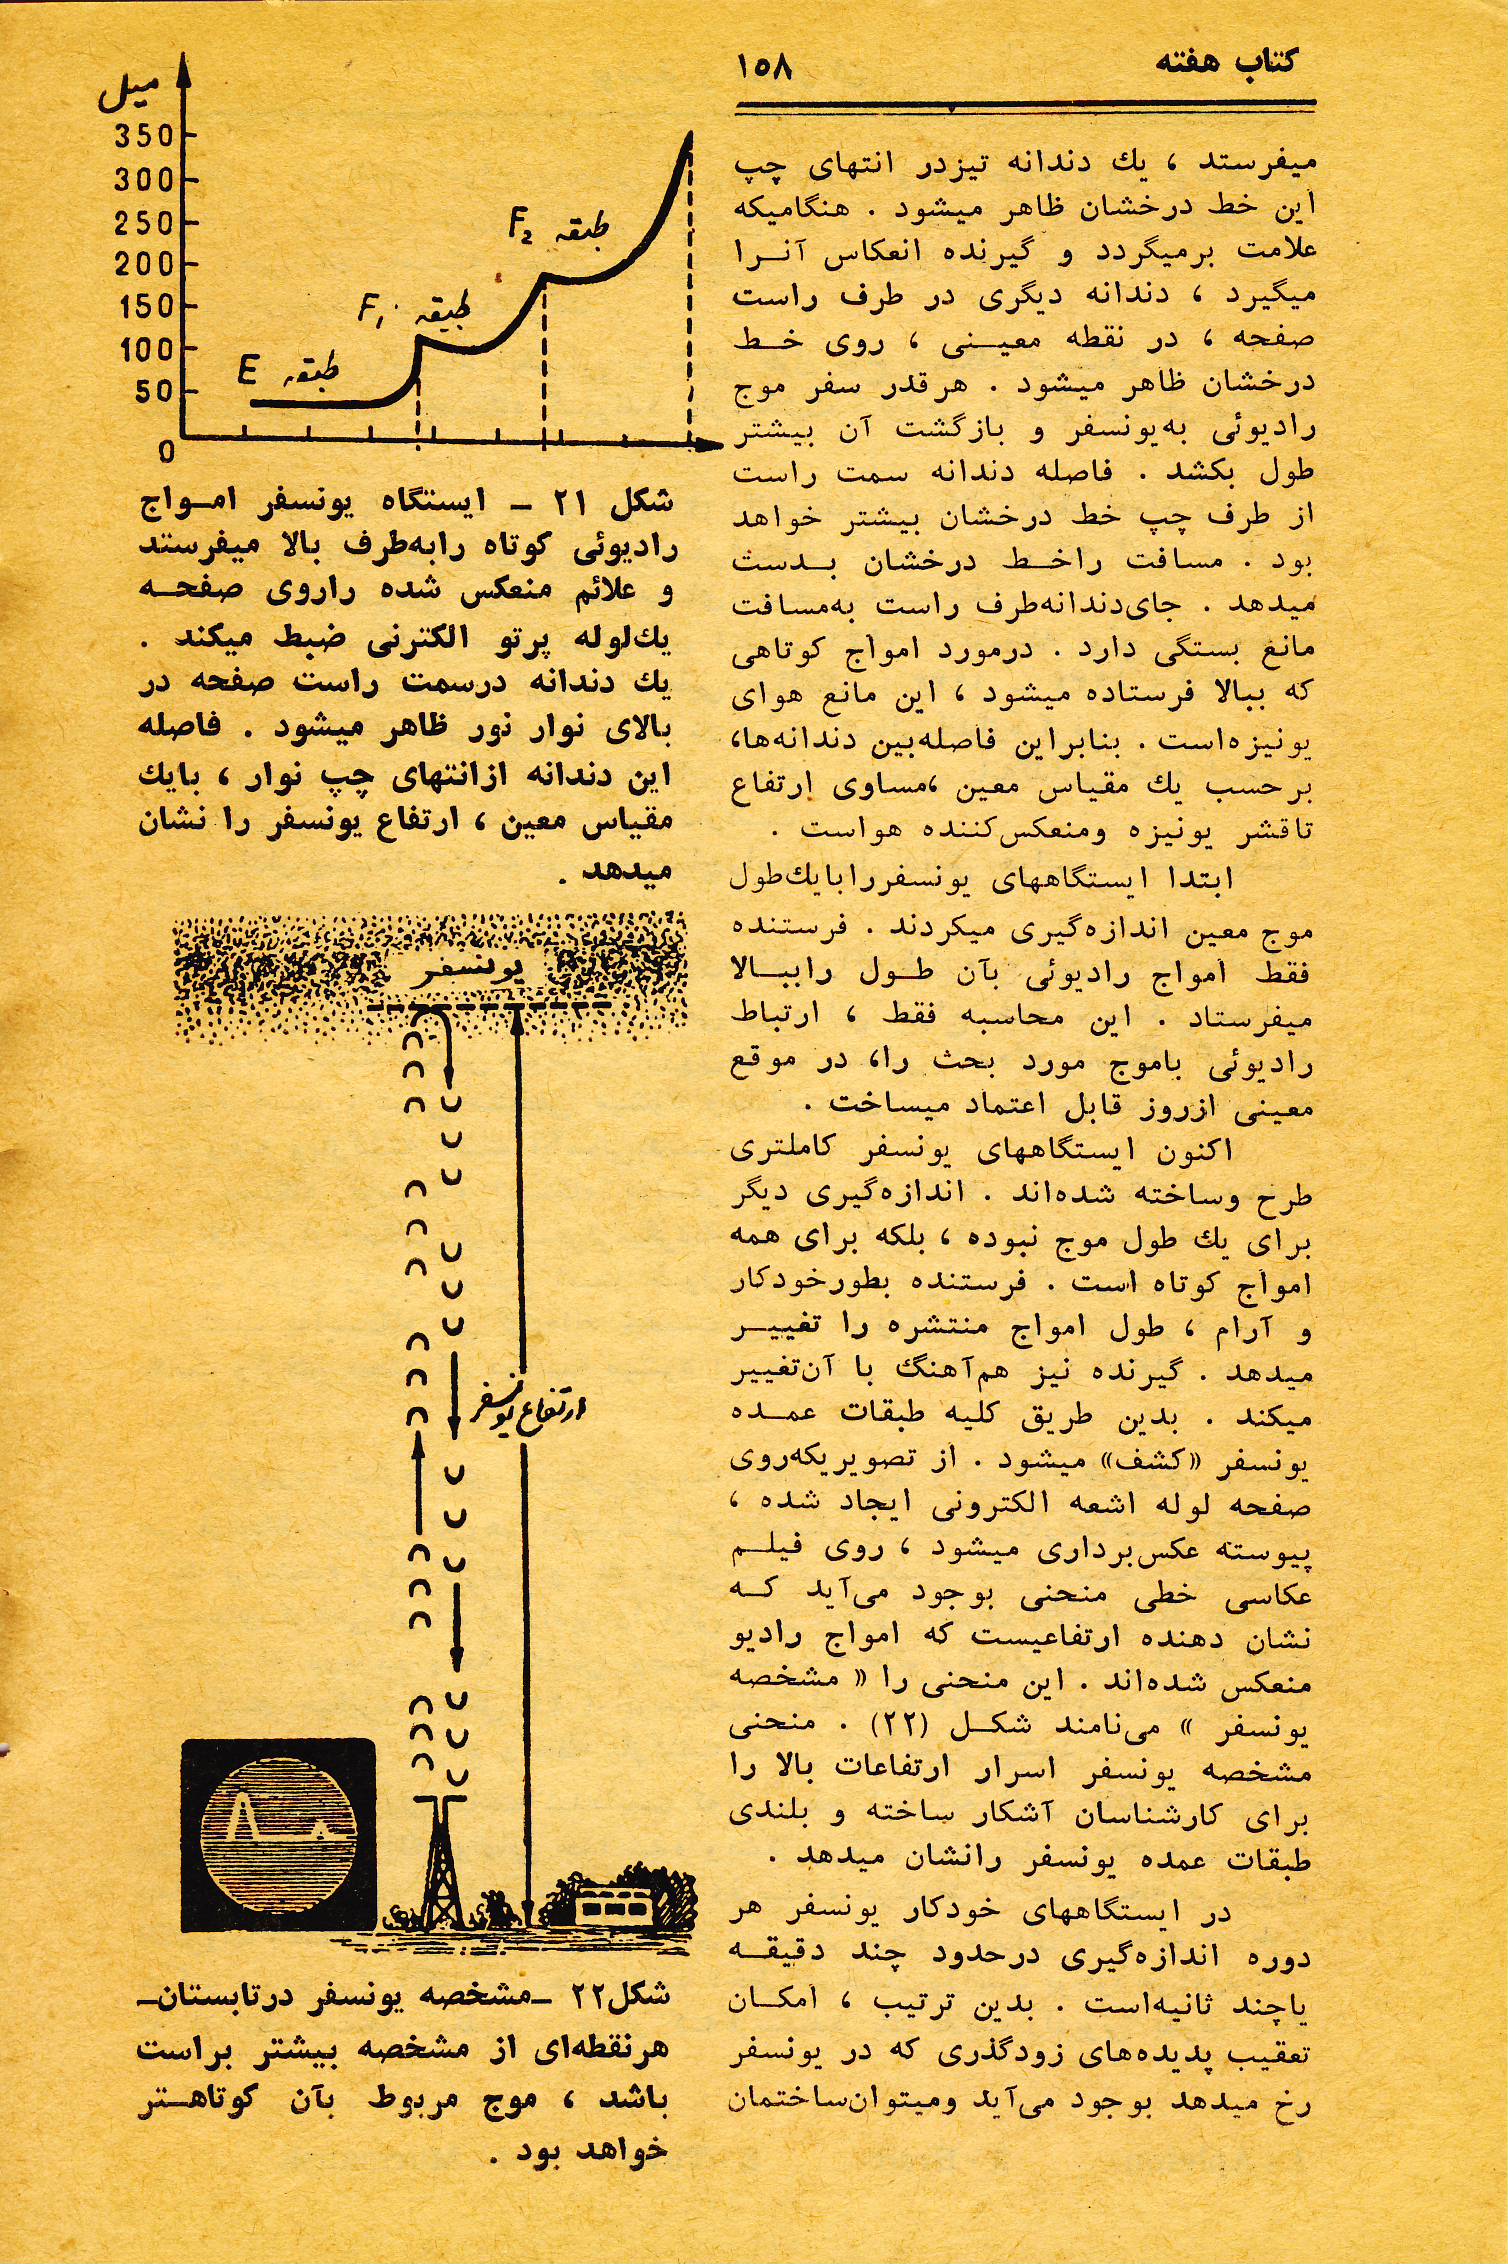 کتاب هفته
۱۵۸
میفرستد ، یك دندانه تیزدر انتهای چپ
این خط درخشان ظاهر میشود . هنگامیکه
علامت برمیگردد و گیرنده انعکاس آنرا
میگیرد ، دندانه دیگری در طرف راست
صفحه ، در نقطه معینی ، روی خط
درخشان ظاهر میشود . هرقدر سفر موج
رادیوئی به‌یونسفر و بازگشت آن بیشتر
طول بکشد . فاصله دندانه سمت راست
از طرف چپ خط درخشان بیشتر خواهد
بود . مسافت راخط درخشان بدست
میدهد . جای‌دندانه‌طرف راست به‌مسافت
مانع بستگی دارد . درمورد امواج کوتاهی
که ببالا فرستاده میشود ، این مانع هوای
یونیزه‌است . بنابراین فاصله‌بین دندانه‌ها،
برحسب یك مقیاس معین ،مساوی ارتفاع
تاقشر یونیزه ومنعکس‌کننده هواست .
ابتدا ایستگاههای یونسفررابایك‌طول
موج معین اندازه‌گیری میکردند . فرستنده
فقط امواج رادیوئی بآن طول راببالا
میفرستاد . این محاسبه فقط ، ارتباط
رادیوئی باموج مورد بحث را، در موقع
معینی ازروز قابل اعتماد میساخت .
اکنون ایستگاههای یونسفر کاملتری
طرح وساخته شده‌اند . اندازه‌گیری دیگر
برای یك طول موج نبوده ، بلکه برای همه
امواج کوتاه است . فرستنده بطورخودکار
و آرام ، طول امواج منتشره را تغییر
میدهد . گیرنده نیز هم‌آهنگ با آن‌تغییر
میکند . بدین طریق کلیه طبقات عمده
یونسفر «کشف» میشود . از تصویریکه‌روی
صفحه لوله اشعه الکترونی ایجاد شده ،
پیوسته عکس‌برداری میشود ، روی فیلم
عکاسی خطی منحنی بوجود می‌آید که
نشان دهنده ارتفاعیست که امواج رادیو
منعکس شده‌اند . این منحنی را « مشخصه
یونسفر » می‌نامند شکل (۲۲) . منحنی
مشخصه یونسفر اسرار ارتفاعات بالا را
برای کارشناسان آشکار ساخته و بلندی
طبقات عمده یونسفر رانشان میدهد .
در ایستگاههای خودکار یونسفر هر
دوره اندازه‌گیری درحدود چند دقیقه
یاچند ثانیه‌است . بدین ترتیب ، امکان
تعقیب پدیده‌های زودگذری که در یونسفر
رخ میدهد بوجود می‌آید ومیتوان‌ساختمان
میل
350
300
250
200
150
100
50
0
طبقه F2
طبقه F1
طبقه E
شکل ۲۱ – ایستگاه یونسفر امواج
رادیوئی کوتاه رابه‌طرف بالا میفرستد
و علائم منعکس شده راروی صفحه
یك‌لوله پرتو الکترنی ضبط میکند .
یك دندانه درسمت راست صفحه در
بالای نوار نور ظاهر میشود . فاصله
این دندانه ازانتهای چپ نوار ، بایك
مقیاس معین ، ارتفاع یونسفر را نشان
میدهد .
یونسفر
ارتفاع یونسفر
شکل۲۲ –مشخصه یونسفر درتابستان–
هرنقطه‌ای از مشخصه بیشتر براست
باشد ، موج مربوط بآن کوتاهتر
خواهد بود .